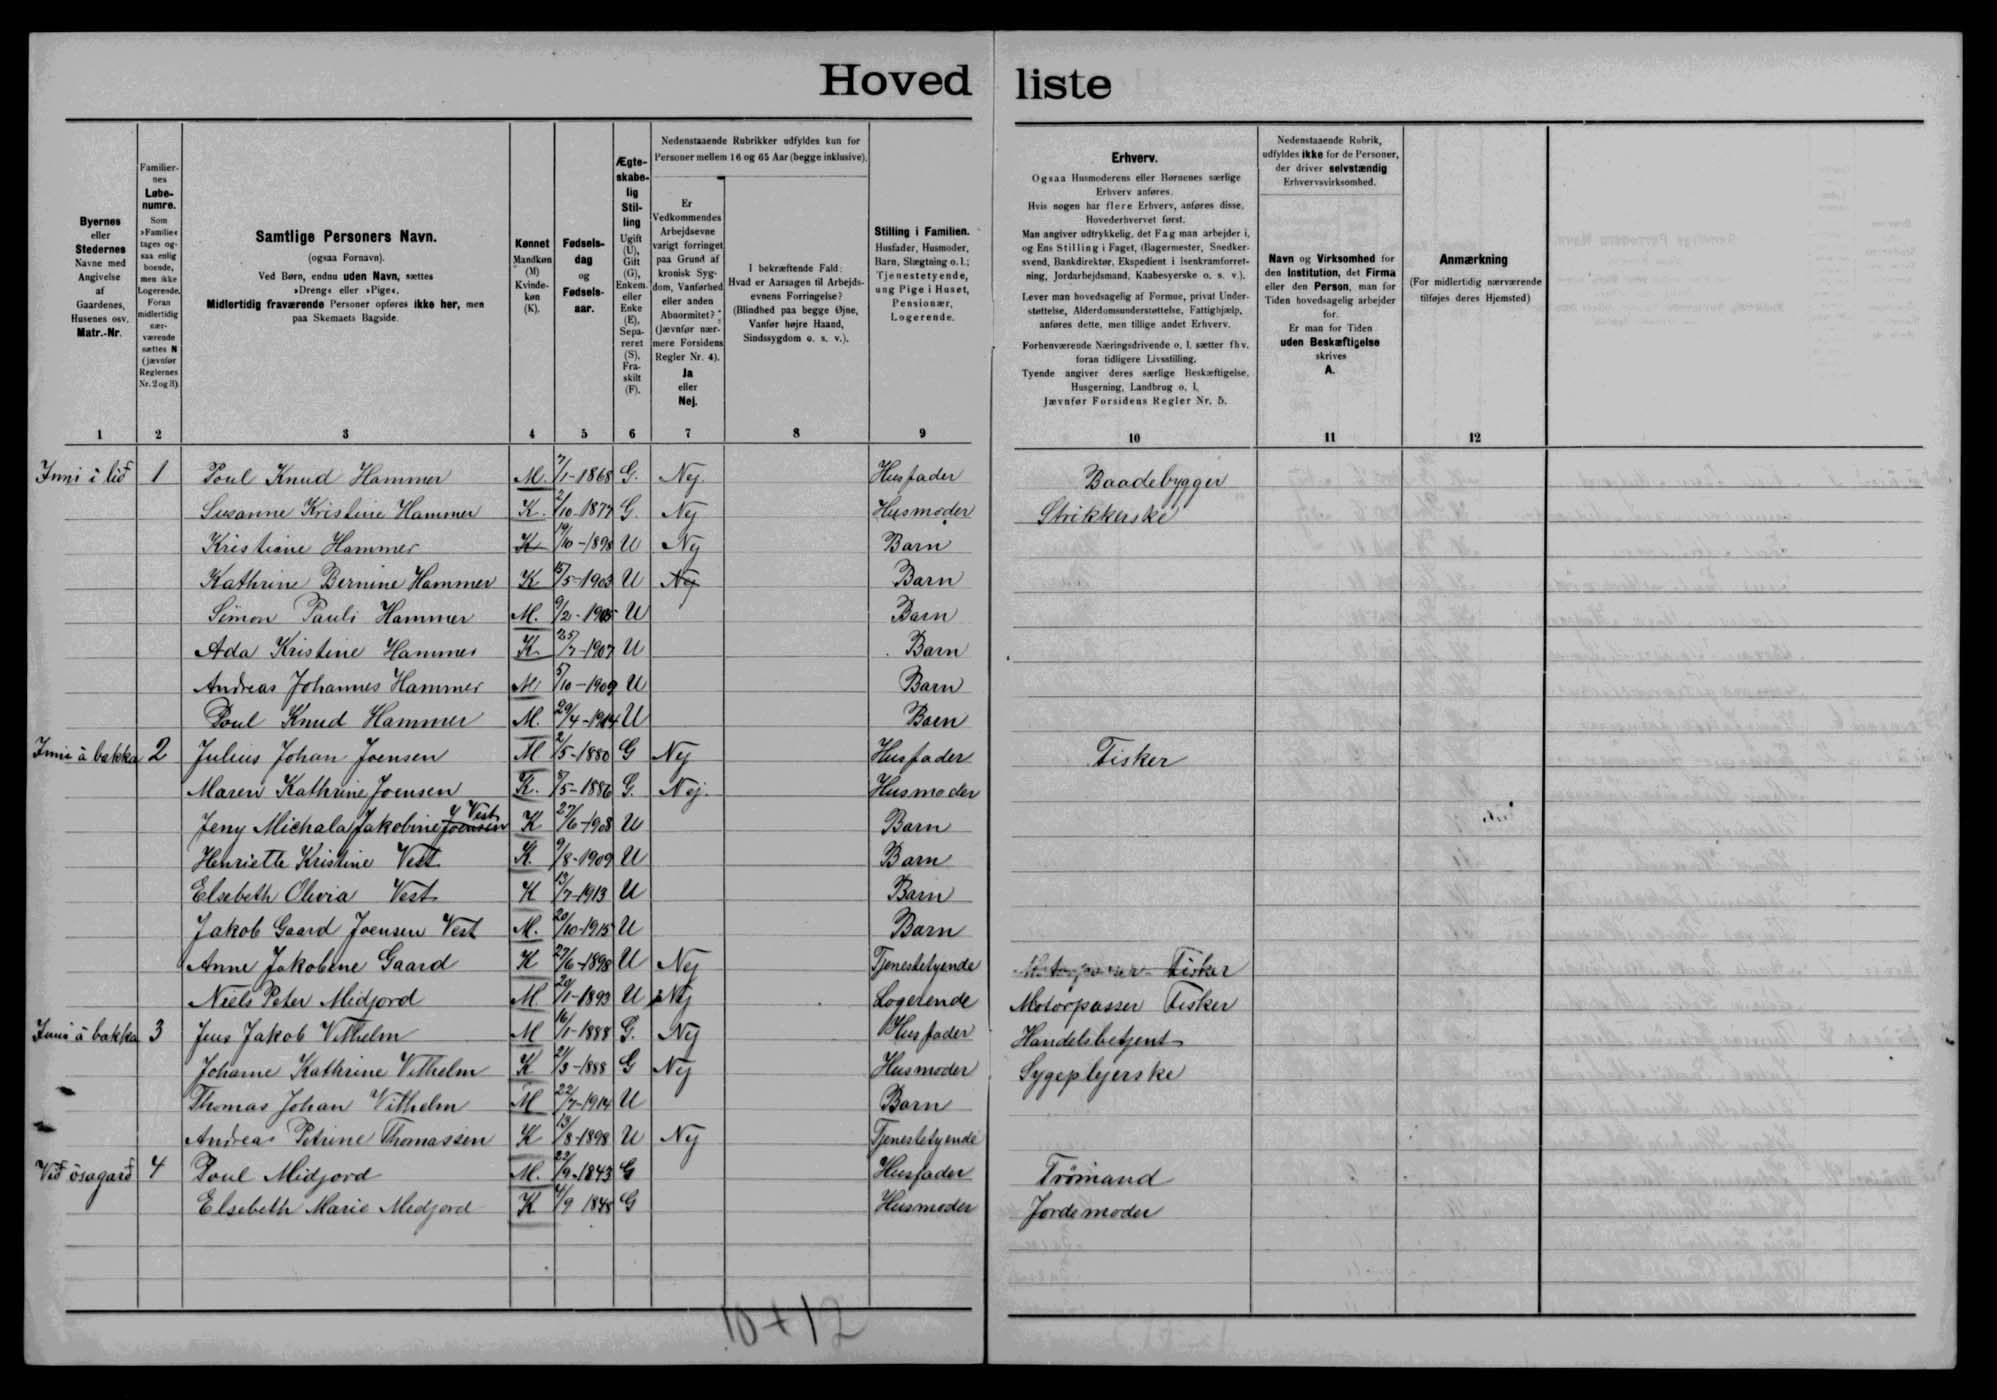 Hoved liste
Byernes
eller
Stedernes
Navne med
Angivelse
af
Gaardenes,
Husenes osv.
Matr.-Nr.
Familier-
nes
Løbe-
numre.
Som
»Familie«
tages og-
saa enlig
boende,
men ikke
Logerende.
Foran
midlertidig
nær-
værende
sættes N
(jævnfør
Reglernes
Nr. 2 og 3).
Samtlige Personers Navn.
(ogsaa Fornavn).
Ved Børn, endnu uden Navn, sættes
»Dreng« eller »Pige«.
Midlertidig fraværende Personer opføres ikke her, men
paa Skemaets Bagside.
Kønnet
Mandkøn
(M)
Kvinde-
køn
(K).
Fødsels-
dag
og
Fødsels-
aar.
Ægte-
skabe-
lig
Stil-
ling
Ugift
(U),
Gift
(G),
Enkem.
eller
Enke
(E),
Sepa-
reret
(S),
Fra-
skilt
(F).
Nedenstaaende Rubrikker udfyldes kun for
Personer mellem 16 og 65 Aar (begge inklusive).
Er
Vedkommendes
Arbejdsevne
varigt forringet
paa Grund af
kronisk Syg-
dom, Vanførhed
eller anden
Abnormitet?
(Jævnfør nær-
mere Forsidens
Regler Nr. 4).
Ja
eller
Nej.
I bekræftende Fald:
Hvad er Aarsagen til Arbejds-
evnens Forringelse?
(Blindhed paa begge Øjne,
Vanfør højre Haand,
Sindssygdom o. s. v.).
Stilling i Familien.
Husfader, Husmoder,
Barn, Slægtning o. l.;
Tjenestetyende,
ung Pige i Huset,
Pensionær,
Logerende.
Erhverv.
Ogsaa Husmoderens eller Børnenes særlige
Erhverv anføres.
Hvis nogen har flere Erhverv, anføres disse,
Hovederhvervet først.
Man angiver udtrykkelig, det Fag man arbejder i,
og Ens Stilling i Faget, (Bagermester, Snedker-
svend, Bankdirektør, Ekspedient i Isenkramforret-
ning, Jordarbejdsmand, Kaabesyerske o. s. v.).
Lever man hovedsagelig af Formue, privat Under-
støttelse, Alderdomsunderstøttelse, Fattighjælp,
anføres dette, men tillige andet Erhverv.
Forhenværende Næringsdrivende o. l. sætter fhv.
foran tidligere Livsstilling.
Tyende angiver deres særlige Beskæftigelse,
Husgerning, Landbrug o. l.
Jævnfør Forsidens Regler Nr. 5.
Nedenstaaende Rubrik,
udfyldes ikke for de Personer,
der driver selvstændig
Erhvervsvirksomhed.
Navn og Virksomhed for
den Institution, det Firma
eller den Person, man for
Tiden hovedsagelig arbejder
for.
Er man for Tiden
uden Beskæftigelse
skrives
A.
Anmærkning
(For midlertidig nærværende
tilføjes deres Hjemsted)
1 2 3 4 5 6 7 8 9 10 11 12
Inni i lið 1 Poul Knud Hammer M. 7/1-1868 G. Nej. Husfader Baadebygger
Susanne Kristine Hammer K. 2/10-1877 G. Nej Husmoder Strikkerske
Kristiane Hammer K 19/10-1898 U Nej Barn
Kathrine Bernine Hammer K 15/5-1903 U Nej Barn
Simon Pauli Hammer M. 9/2-1905 U Barn
Ada Kristine Hammer K 25/7-1907 U Barn
Andreas Johannes Hammer M 5/10-1909 U Barn
Poul Knud Hammer M. 29/4-1914 U Barn
Inni á bakka 2 Julius Johan Joensen M 2/5-1880 G Nej Husfader Fisker
Maren Kathrine Joensen K. 8/5-1886 G. Nej. Husmoder
Jeny Michala Jakobine Joensen Vest K 27/6-1908 U Barn
Henriette Kristine Vest K. 9/8-1909 U Barn
Elsebeth Olivia Vest K 13/7-1913 U Barn
Jakob Gaard Joensen Vest M. 20/10-1915 U Barn
Anne Jakobine Gaard K 27/6-1898 U Nej Tjenestetyende Motorpasser Fisker
Niels Peter Midjord M 20/1-1893 U Nej Logerende Motorpasser Fisker
Inni á bakka 3 Jens Jakob Vilhelm M 16/1-1888 G. Nej Husfader Handelsbetjent
Johanne Kathrine Vilhelm K 21/3-1888 G Nej Husmoder Sygeplejerske
Thomas Johan Vilhelm M 22/7-1914 U Barn
Andrea Petrine Thomassen K 13/8-1898 U Nej Tjenestetyende
Við ósagarð 4 Poul Midjord M. 22/9-1843 G Husfader Trømand
Elsebeth Marie Midjord K 4/9 1848 G Husmoder Jordemoder
10+12